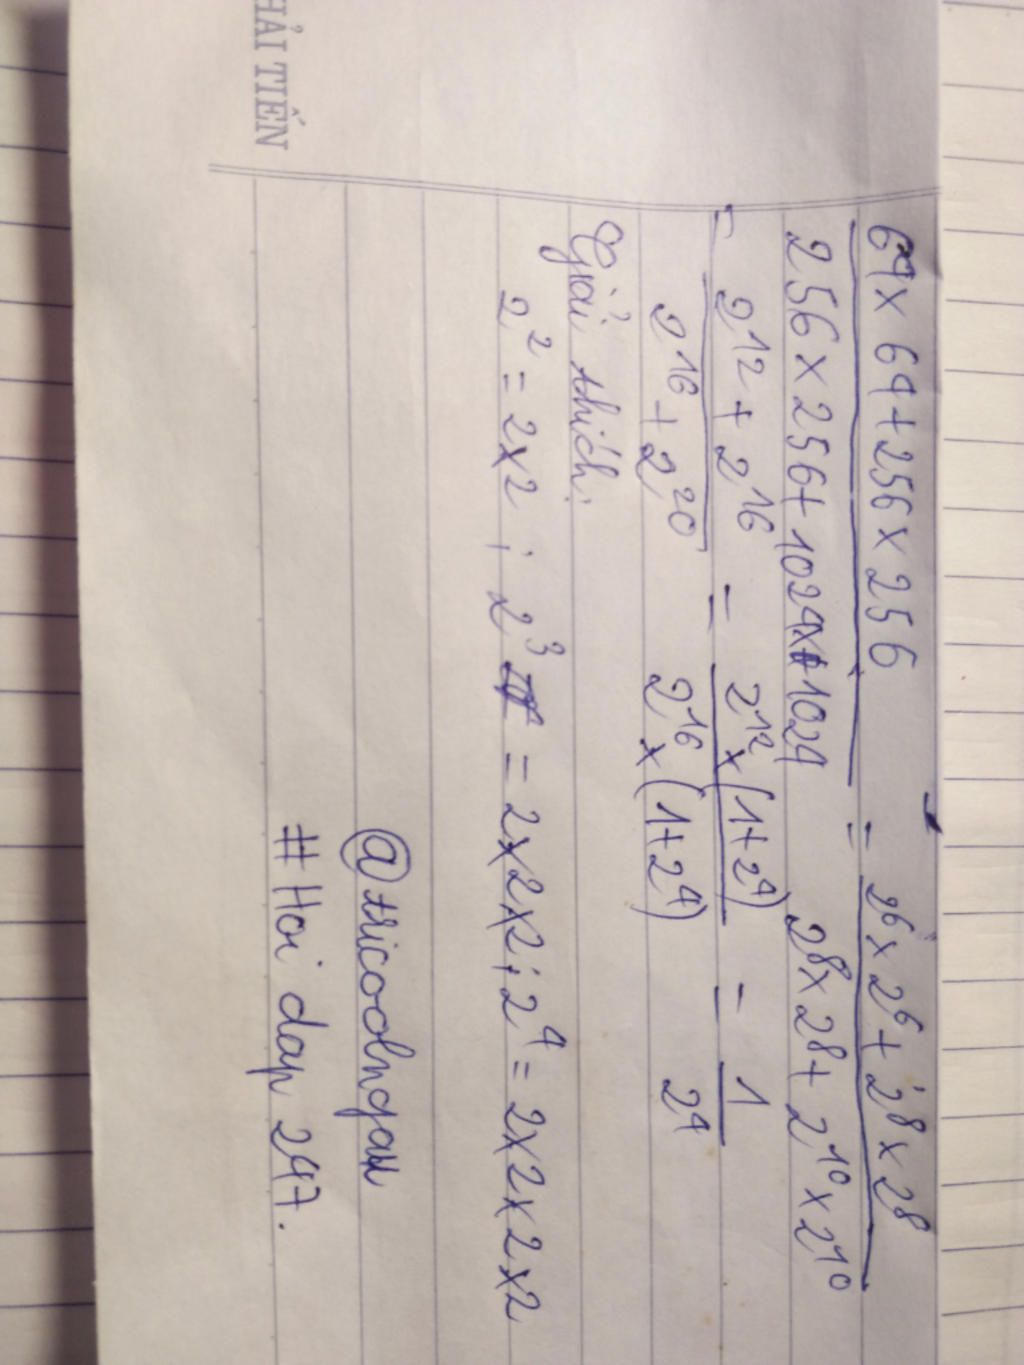 HẢI TIẾN
64 x 64 + 256 x 256 / 256 x 256 + 1024 x 1024 = 2⁶ x 2⁶ + 2⁸ x 2⁸ / 2⁸ x 2⁸ + 2¹⁰ x 2¹⁰
= 2¹² + 2¹⁶ / 2¹⁶ + 2²⁰ = 2¹² x (1 + 2⁴) / 2¹⁶ x (1 + 2⁴) = 1 / 2⁴
Giải thích:
2² = 2 x 2 ; 2³ = 2 x 2 x 2 ; 2⁴ = 2 x 2 x 2 x 2
@tricoolngau
# Hoi dap 247.